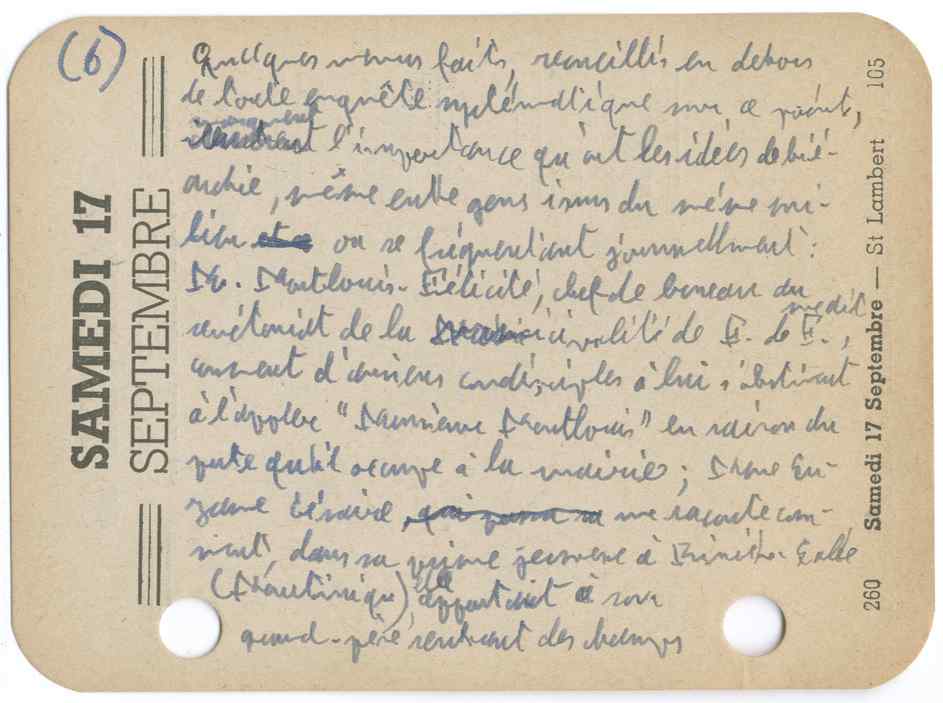 (6)
Quelques menus faits, recueillis en dehors
de toute enquête systématique sur ce point,
marquent
illustrent l'importance qu'ont les idées de hié-
rarchie, même entre gens issus du même mi-
lieu et se ou se fréquentant journellement :
M. Montlouis-Félicité, chef de bureau du
secrétariat de la municipalité de F. de F., me dit
comment d'anciens condisciples à lui s'obstinent
à l'appeler "Monsieur Montlouis" en raison du
poste qu'il occupe à la mairie ; Mme Eu-
zane Césaire, me raconte com-
ment, dans sa prime jeunesse à Rivière-Salée
(Martinique), elle apportait à son
grand-père rentrant des champs
SAMEDI 17
SEPTEMBRE
260 Samedi 17 Septembre — St Lambert 105